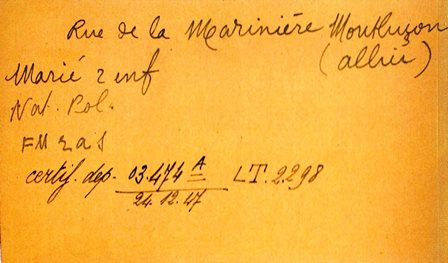 Rue de la Marinière Montluçon
(allier)
Marié 2 enf
Nat. Pol.
FM 2 a 1
certif. dep. 03.474 A LT. 2298
24.12.47